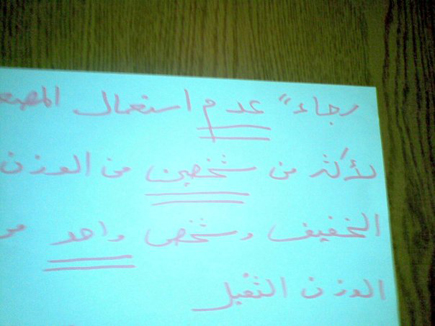 رجاءً عدم استعمال المصعد
لأكثر من شخصين من الوزن
الخفيف وشخص واحد من
الوزن الثقيل